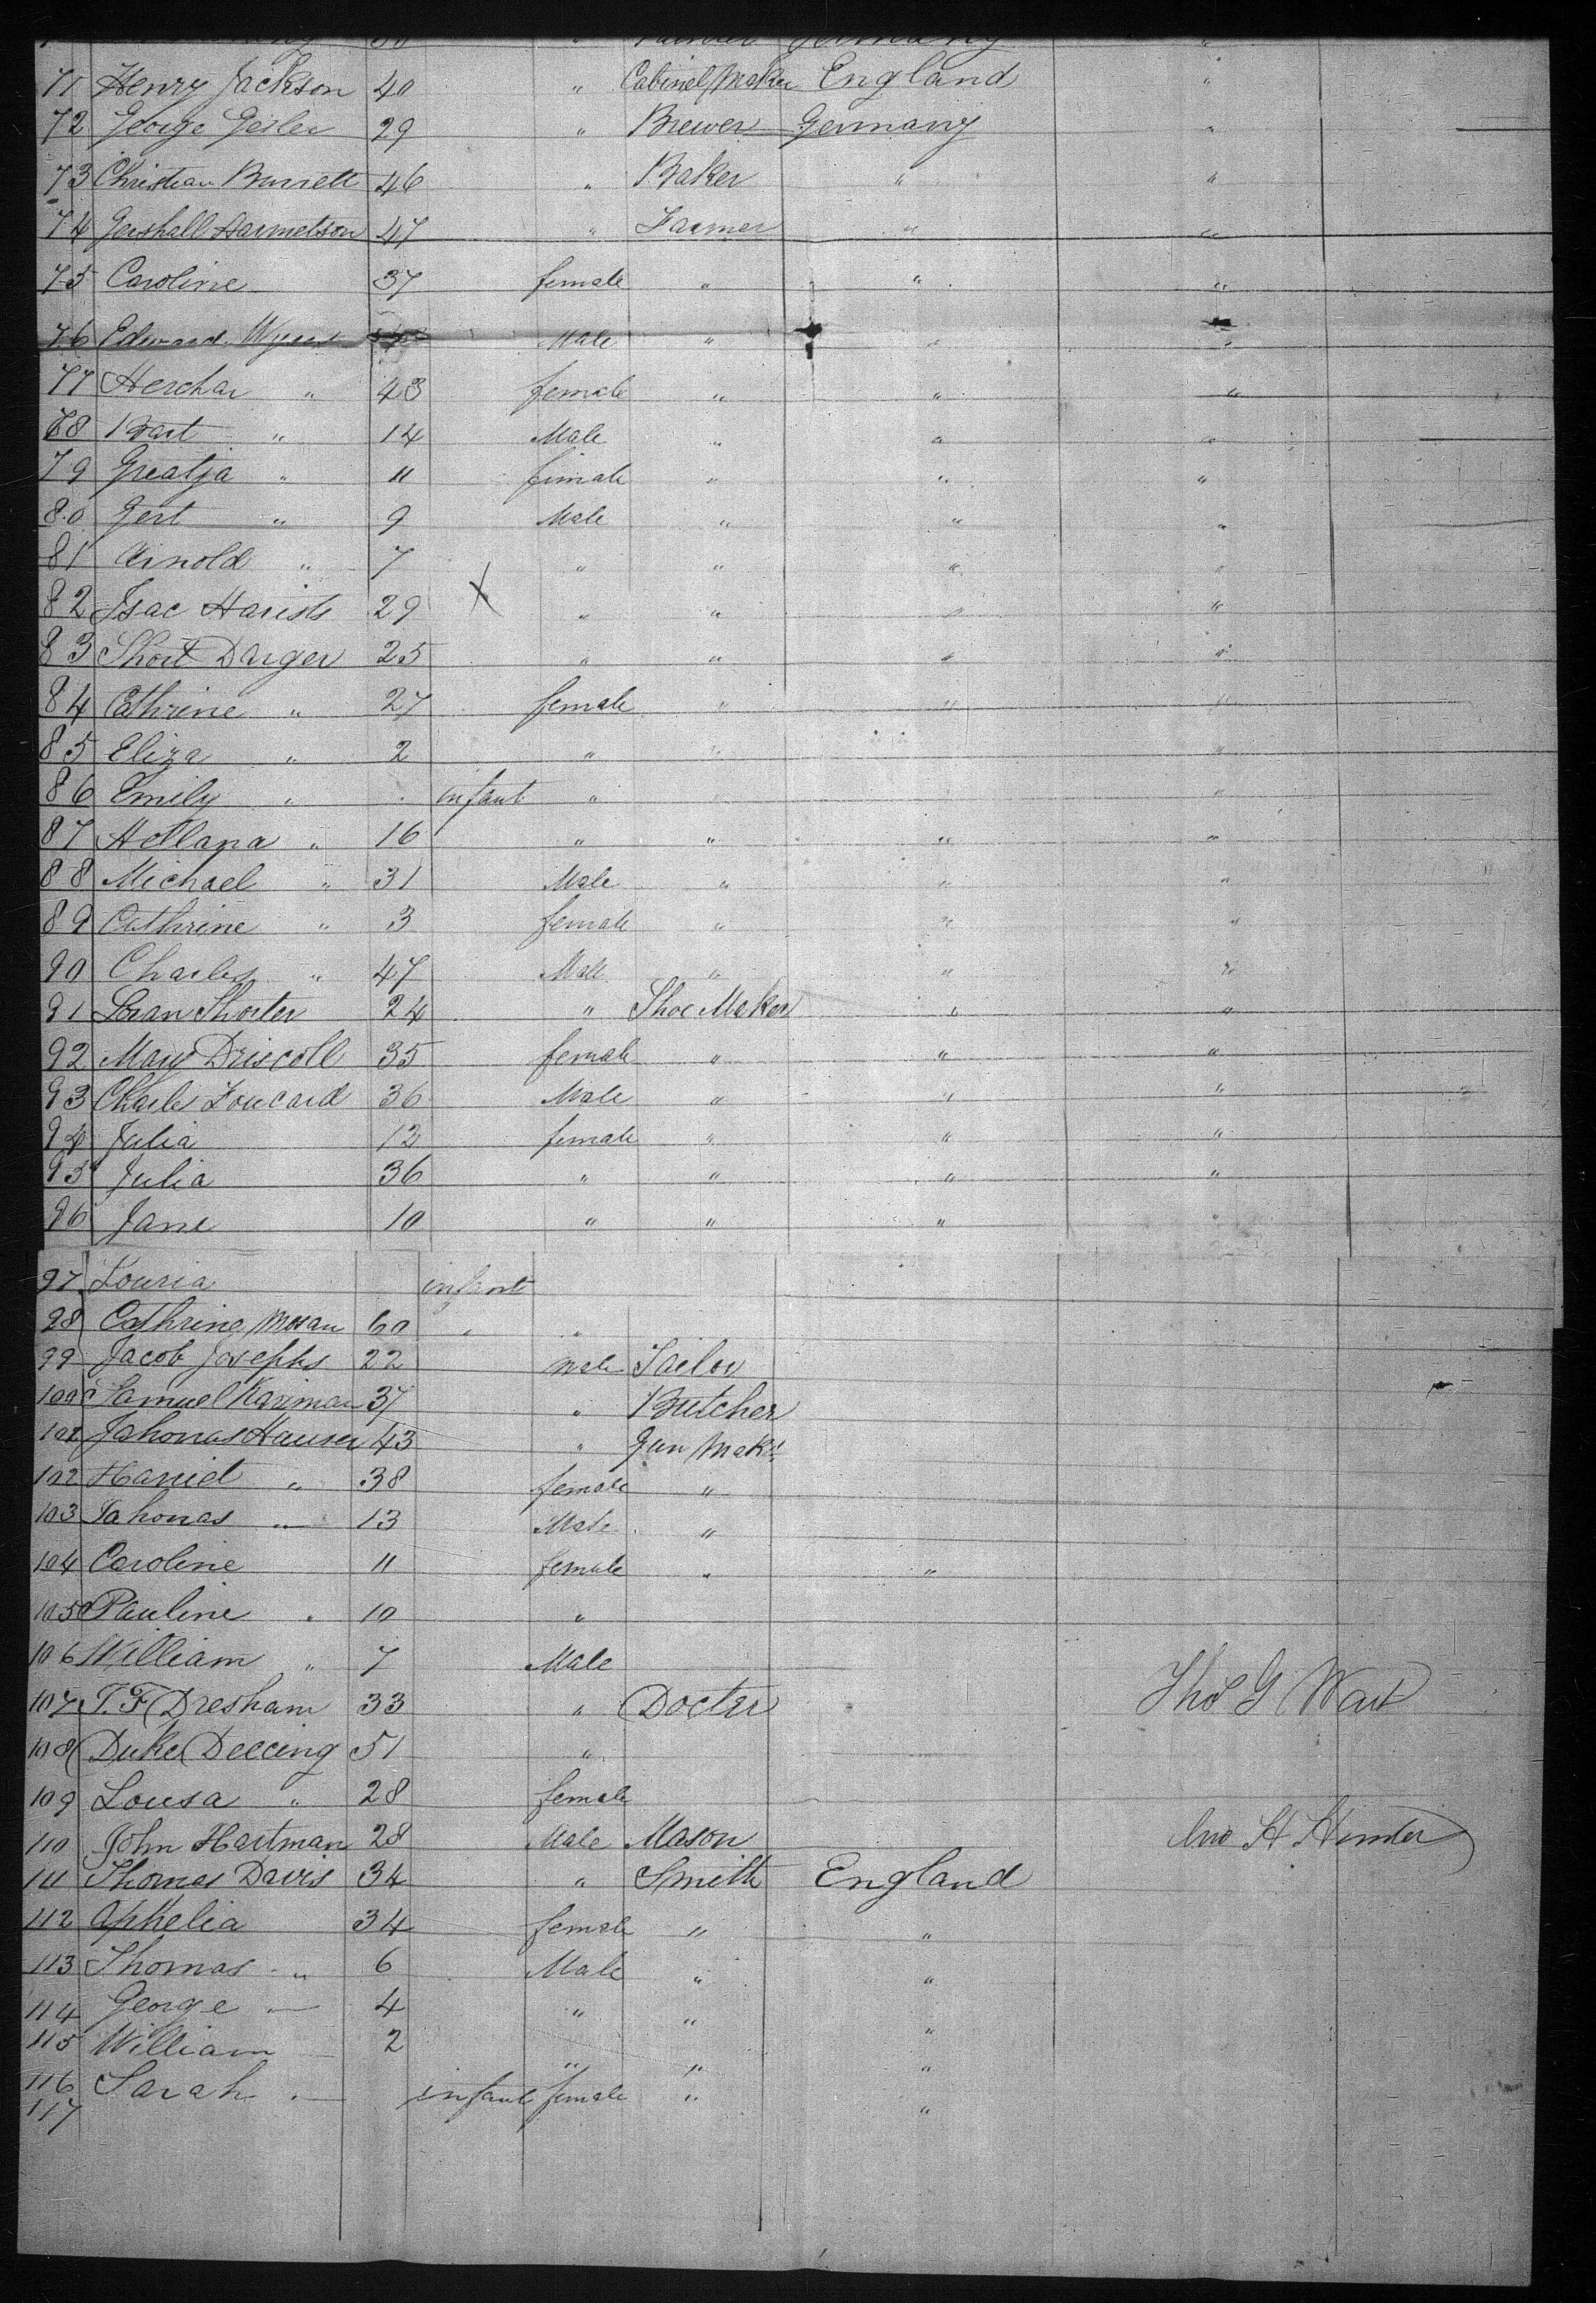 30 " Germany "
71 Henry Jackson 40 " Cabinet Maker England "
72 George Gesler 29 " Brewer Germany "
73 Christian 46 " Baker " "
74 Gershall Harmetson 47 " Farmer " "
75 Caroline 37 female " " "
76 Edward Wyers Male " " "
77 Herchar " 43 female " " "
78 Bart " 14 Male " " "
79 Greatja " 11 female " " "
80 Gert " 9 Male " " "
81 Arnold " 7 " " " "
82 Isac Harish 29 X " " " "
83 Short Darger 25 " " " "
84 Cathrine " 27 female " " "
85 Eliza " 2 " " "
86 Emily " infant " "
87 Hellana " 16 " " " "
88 Michael " 31 Male " " "
89 Cathrine " 3 female " " "
90 Charles " 47 Male " " "
91 Shorter 24 " Shoe Maker " "
92 Mary Driscoll 35 female " " "
93 Charles Foucard 36 Male " " "
94 Julia 12 female " " "
95 Julia 36 " " " "
96 Jane 10 " " " "
97 Louria infant
98 Cathrine Moran 60 " "
99 Jacob Josephs 22 male Tailor
100 Samuel Kariman 37 " Butcher
101 Jahonas Hauser 43 " Gun Makr
102 Hariet " 38 female "
103 Jahonas " 13 Male "
104 Caroline 11 female " "
105 Pauline " 10 "
106 William " 7 Male
107 T. F. Dresham 33 " Docter Thos G Wait
108 Duke Deecing 51 "
109 Lousa " 28 female
110 John Hartman 28 Male Mason H Hunter
111 Thomas Davis 34 " Smith England
112 Aphelia 34 female " "
113 Thomas " 6 Male " "
114 George " 4 " " "
115 William 2 " " "
116 Sarah " infant female " "
117